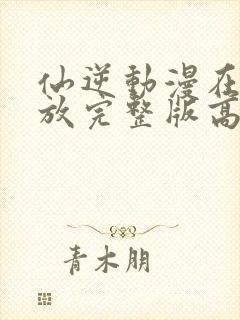 仙逆動漫在
放完整版高
青木朋